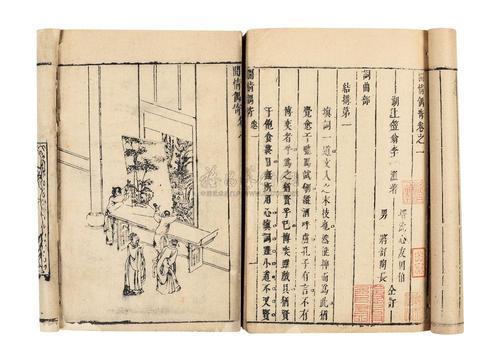 閒情偶寄卷之一
湖上笠翁李 漁著
壻沈心友因伯
男 將舒陶長
仝訂
詞曲部
結搆第一
填詞一道文人之末技也然能抑而為此猶
覺愈于馳馬試劍縱酒呼盧孔子有言不有
博奕者乎為之猶賢乎已博奕雖戲具猶賢
于飽食終日無所用心填詞雖小道不又賢
閒情偶寄 卷一
閒情偶寄